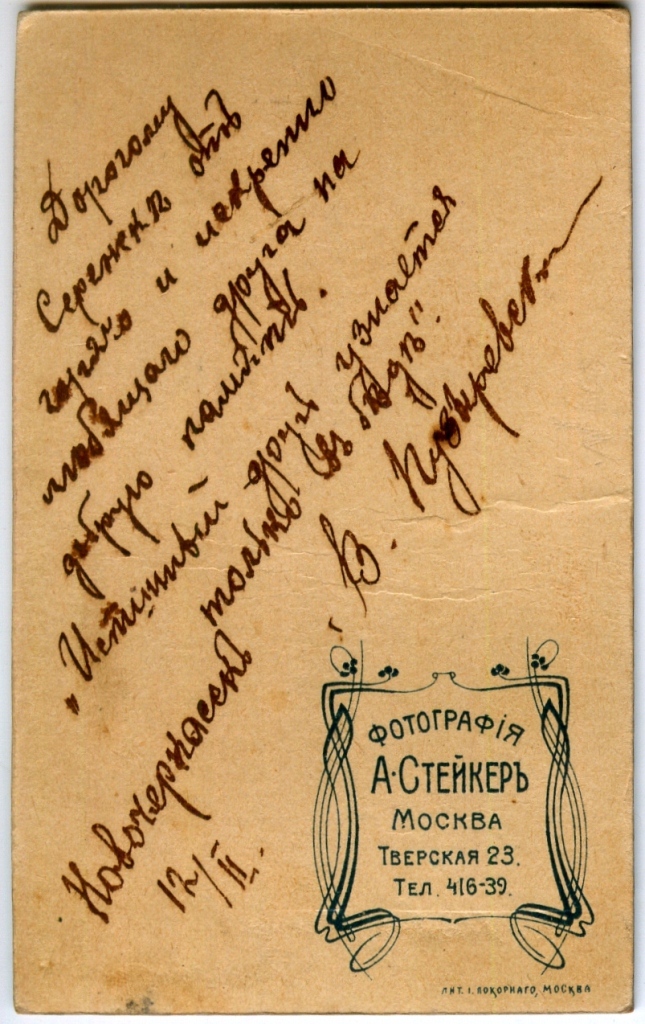 Дорогому
Сережкѣ отъ
горячо и искренно
любящаго друга на
добрую память.
„Истинный другъ узнается
только въ бѣдѣ".
В.
Новочеркасскъ
12/II.
ФОТОГРАФІЯ
А·СТЕЙКЕРЪ
МОСКВА
ТВЕРСКАЯ 23.
ТЕЛ. 416-39.
ЛИТ. І. ПОКОРНАГО, МОСКВА